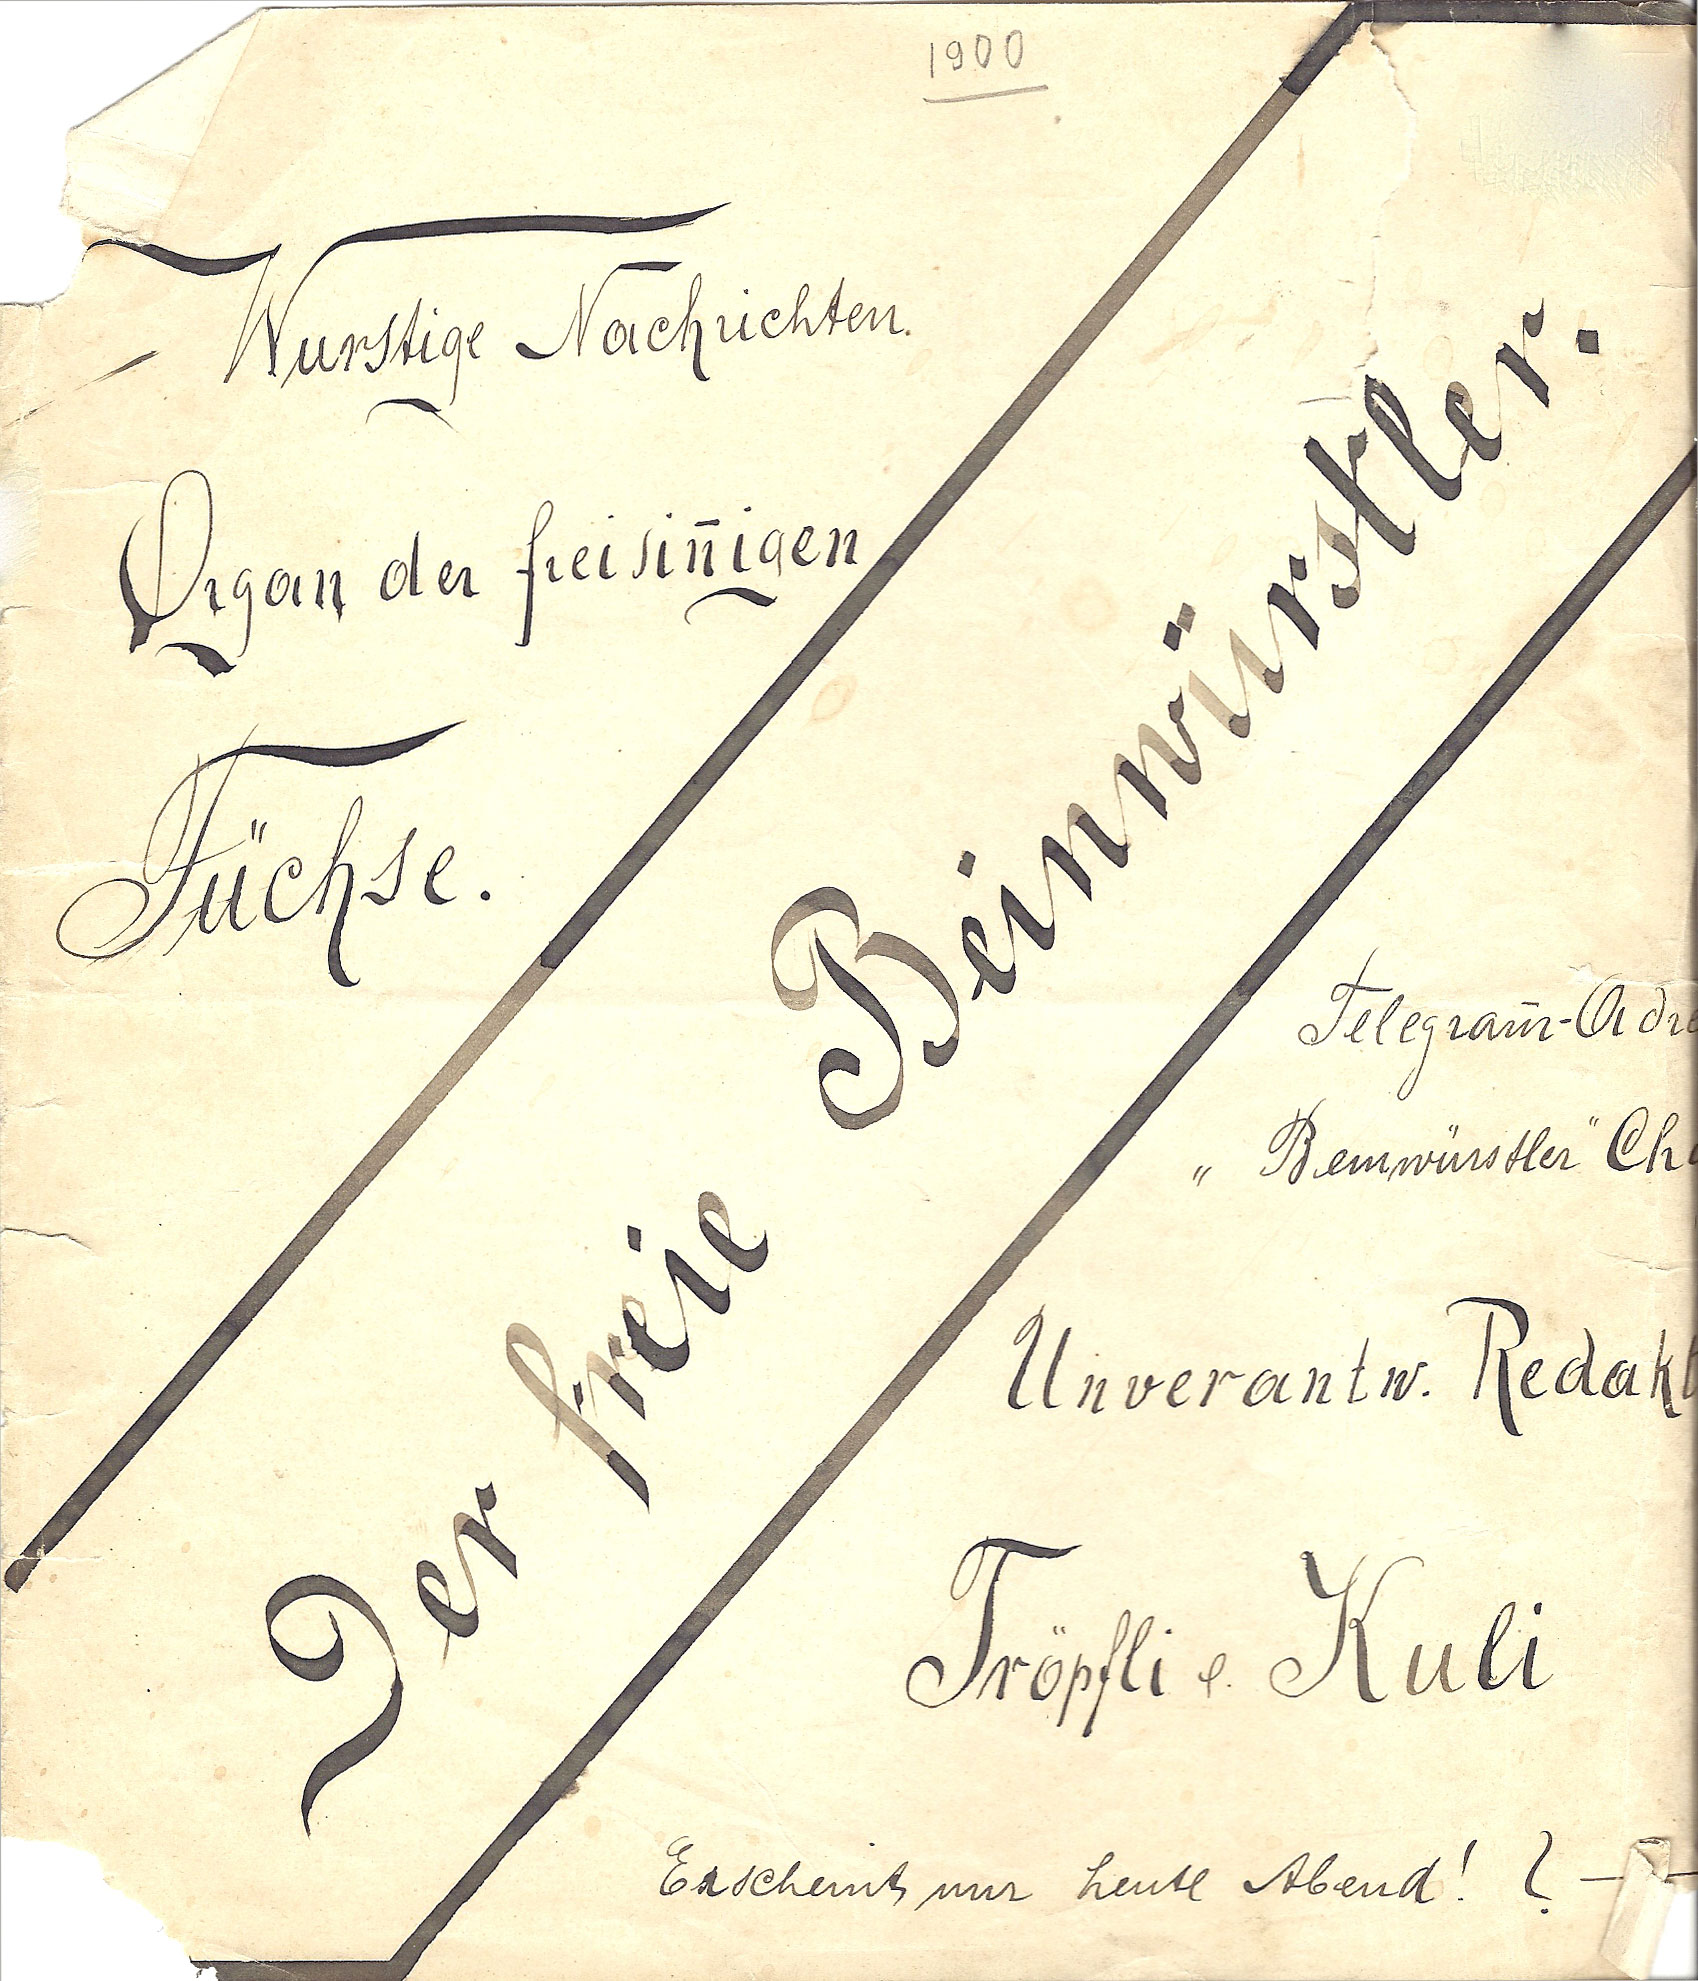 1900
Wurstige Nachrichten.
Organ der freisin̄igen
Füchse.
Der freie Beinwürstler.
Telegram̄-Adre
„Beinwürstler" Ch
Unverantw. Redakt
Tröpfli e. Kuli
Erscheint nur heute Abend! ? —